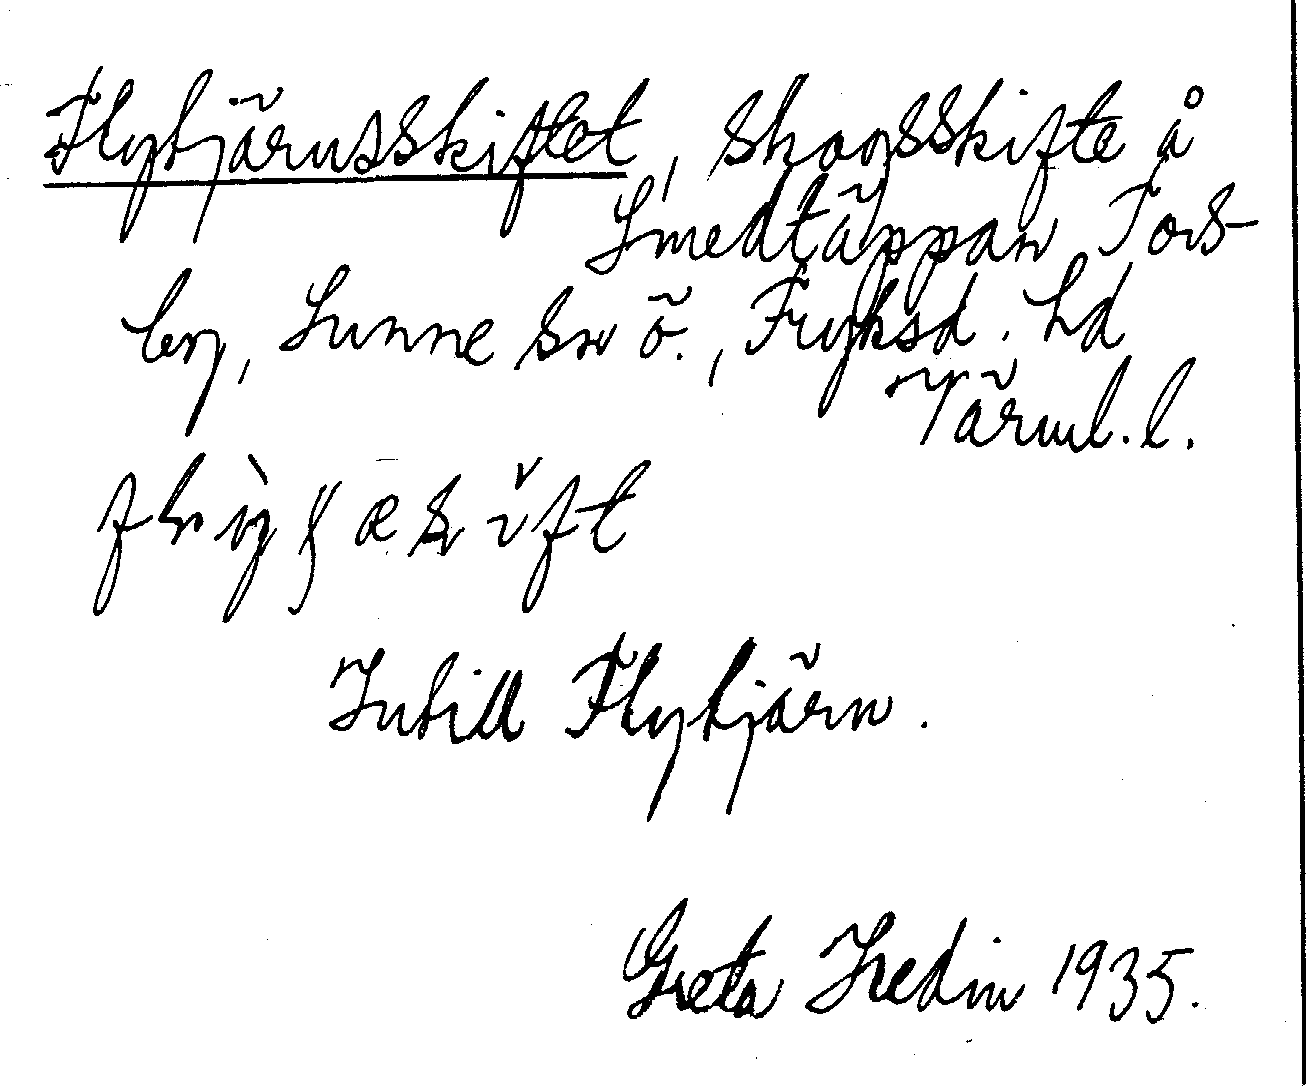 Flytjärnsskiftet, skogsskifte å
Smedtäppan Tors-
by, Sunne sn ö., Fryksd. hd
Värml. l.
Intill Flytjärn.
Greta Hedin 1935.